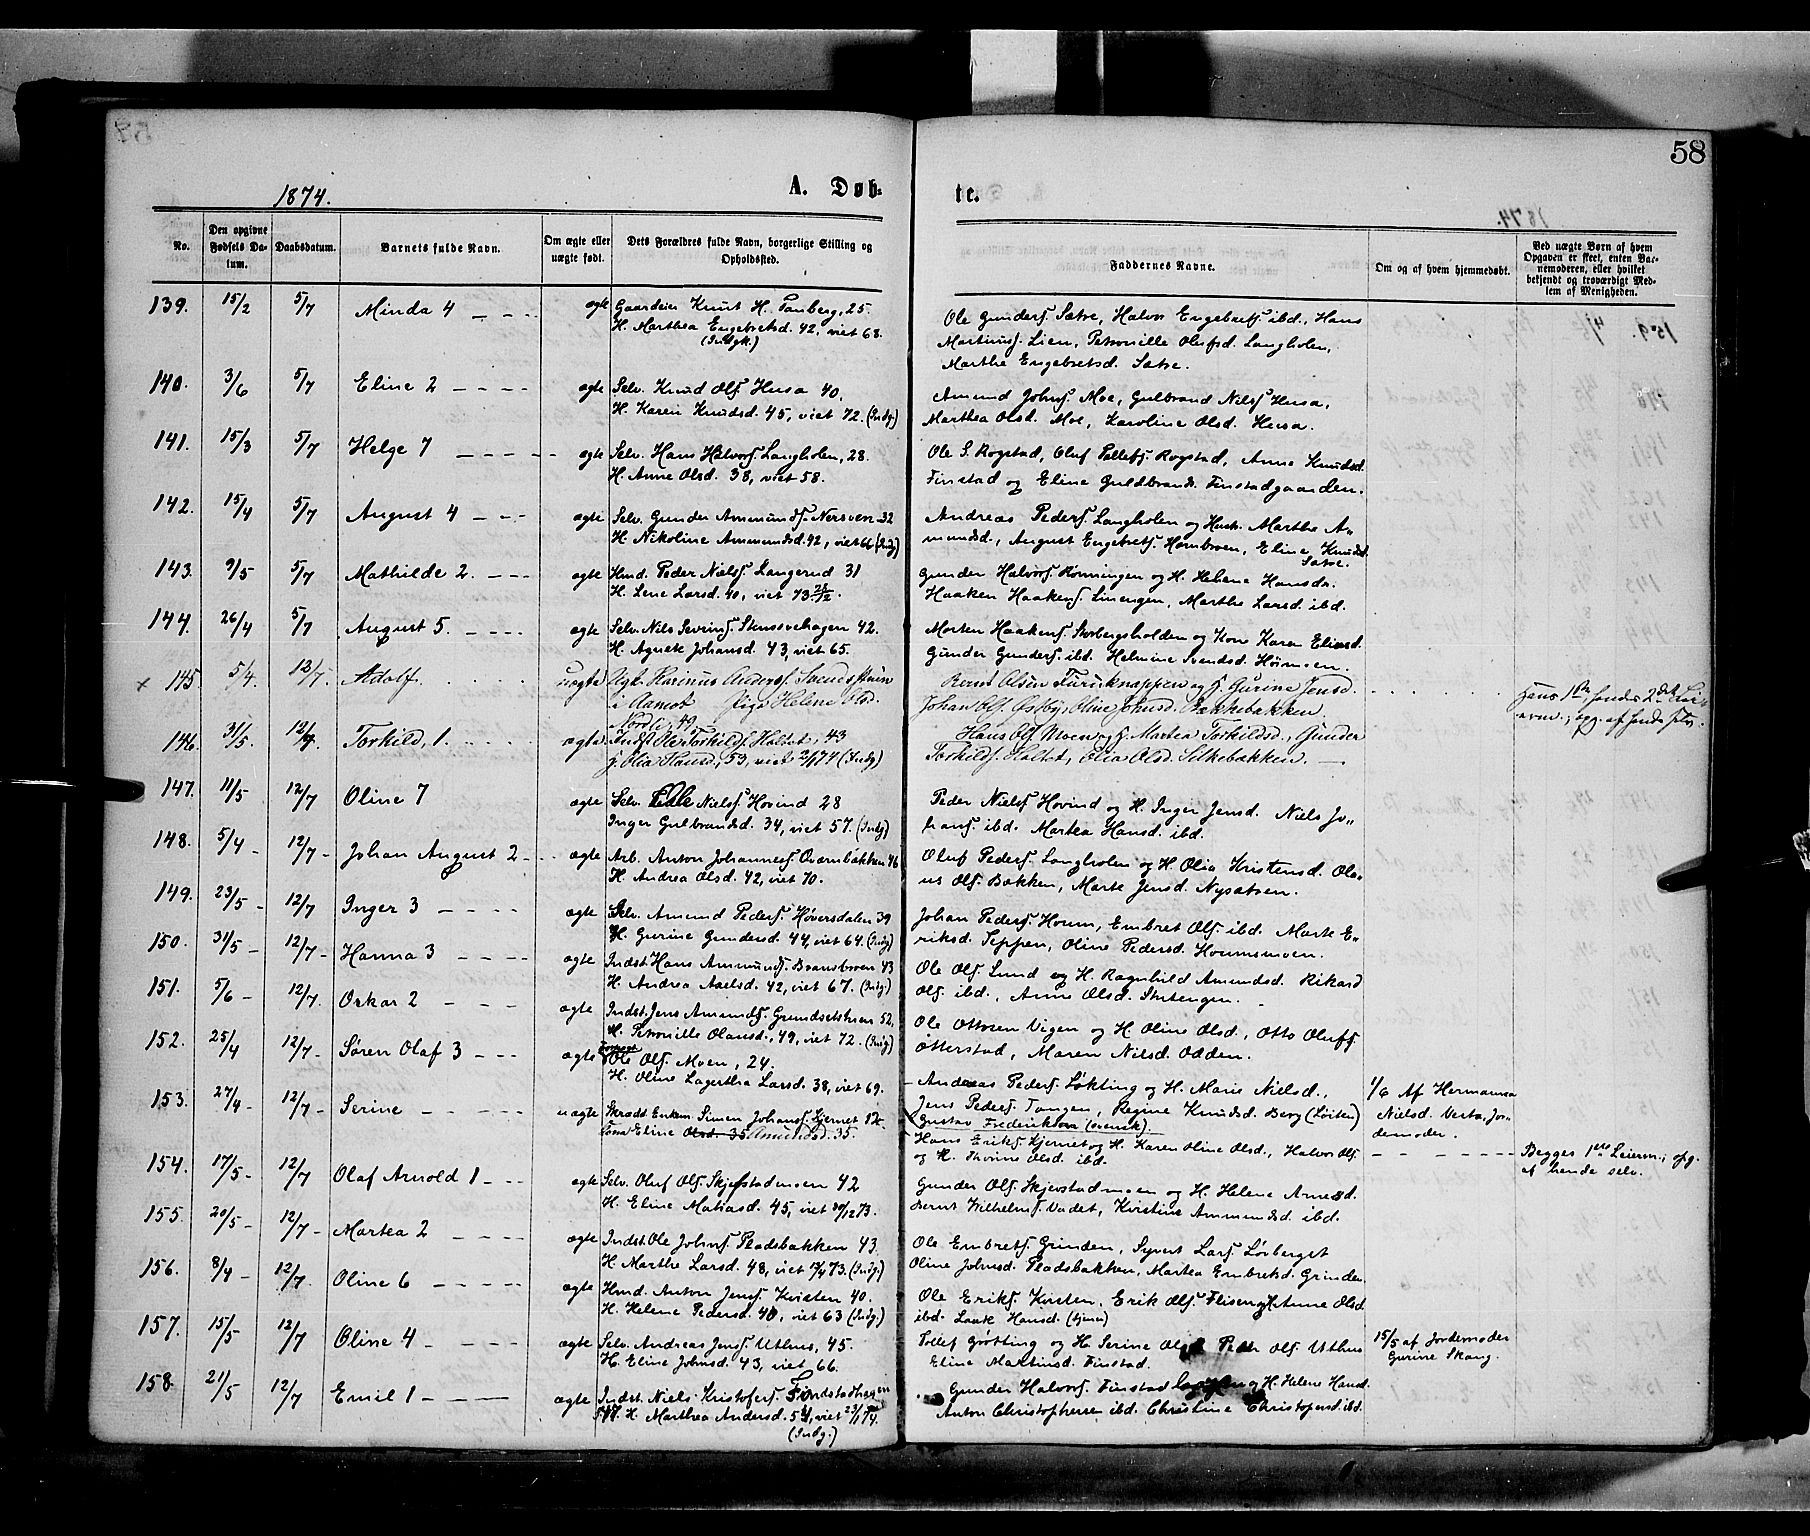 58
1874.
A. Døb-
te.
No.
Den opgivne Fødsels Da-
tum.
Daabsdatum.
Barnets fulde Navn.
Om ægte eller
uægte født.
Dets Forældres fulde Navn, borgerlige Stilling og
Opholdssted.
Faddernes Navne.
Om og af hvem hjemmedøbt.
Ved uægte Børn af hvem
Opgaven er skeet, enten Bar-
nemoderen, eller hvilket
bekjendt og troværdigt Med-
lem af Menigheden.
139. 15/2 5/7 Minda 4 ægte Gaardeier Knut H. Tanberg, 25.
H. Marthea Engebretsd. 42, viet 68.
(Indgk.)
Ole Gunders. Sætre, Halvor Engebrets. ibd., Hans
Martinus. Lien, Petronille Olufsd. Langholen,
Marthe Engebretsd. Sætre.
140. 3/6 5/7 Eline 2 ægte Selv. Knud Ols. Husa 40.
H. Karen Knudsd. 45, viet 72. (Indg.)
Amund Johns. Moe, Gulbrand Nils. Husa,
Marthea Olsd. Moe, Karoline Olsd. Husa.
141. 15/3 5/7 Helge 7 ægte Selv. Hans Halvors. Langholen, 28.
H. Anne Olsd. 38, viet 58.
Ole S. Rogstad, Oluf Tollefs. Rogstad, Anne Knudsd.
Finstad og Eline Guldbrands. Finstadgaarden.
142. 15/4 5/7 August 4 ægte Selv. Gunder Ammunds. Nersveen 32
H. Nikoline Ammundsd. 42, viet 66 (Indg)
Andreas Peders. Langholen og Hust. Marthe A-
mundsd., August Engebrets. Hornbroen, Eline Knudsd.
Sætre.
143. 9/5 5/7 Mathilde 2. ægte Hmd. Peder Niels. Langerud 31
H. Lene Larsd. 40, viet 73
Gunder Halvors. Rønningen og H. Helene Hansdr.
Haaken Haakens. Linengen, Marthe Larsd. ibd.
144. 26/4 5/7 August 5. ægte Selv. Nils Sevrins. 42.
H. Agnete Johansd. 43, viet 65.
Morten Haakens. Storbergsholden og Kone Karen Eliasd.
Gunder Gunders. ibd. Helmine Svendsd. Hømoen.
x 145. 5/4 12/7. Adolf. uægte Ugk. Karinus Anders.
i Aamot Pige Helene Olsd.
Nordli, 49
Bernt Olsen Furuknappen og H. Gurine Jensd.
Johan Ols. Østby, Oline Johnsd. Bakkebakken
Hans 1ste hendes 2det Leier-
146. 31/5. 12/7. Torkild, 1. ægte Indst. Ole Torkilds. Holtet, 43
H. Olia Hansd., 53, viet 2/1 74 (Indg)
Hans Ols. Moen og H. Martea Torkildsd., Gunder
Torkilds. Holtet, Olia Olsd. Silkebakken.
147. 11/5 12/7 Oline 7 ægte Selv. Ole Niels. Hovind 28
Inger Gulbrandsd. 34, viet 57. (Indg)
Peder Niels. Hovind og H. Inger Jensd. Niels Jo-
hans. ibd. Martea Hansd. ibd.
148. 5/4 12/7 Johan August 2 ægte Arb. Anton Johanness. Qværnbakken 46
H. Andrea Olsd. 42, viet 70.
Oluf Peders. Langholen og H. Olia Kristensd. Ola-
us Ols. Bakken, Marte Jensd. Nysætren.
149. 23/5 12/7 Inger 3 ægte Selv. Amund Peders. Høversdalen 39
H. Gurine Gundersd. 44, viet 64. (Indg)
Johan Peders. Houm, Embret Ols. ibd. Marte E-
riksd. Seppen, Oline Pedersd. Houmsmoen.
150. 31/5 12/7 Hanna 3 ægte Indst. Hans Ammunds. Bransbroen 43
H. Andrea Axelsd. 42, viet 67. (Indg)
Ole Ols. Lund og H. Ragnhild Amundsd. Rikard
Ols. ibd., Anne Olsd. Stutengen.
151. 5/6 12/7. Oskar 2 ægte Indst. Jens Amunds. Grundsetshuen 52,
H. Petronille Olausd., 49, viet 72. (Indg)
Ole Ottosen Vigen og H. Oline Olsd., Otto Olufs.
Otterstad, Maren Nilsd. Odden.
152. 25/4 12/7 Søren Olaf 3 ægte Ole Ols. Moen, 24.
H. Oline Lagertha Larsd. 38, viet 69.
Andreas Peders. Løkting og H. Marie Nielsd.,
Jens Peders. Tangen, Regine Knudsd. Berg (Løiten)
Gustav Frederiksen (svensk).
1/6 Af Hermanna
Nielsd. Vesta, Jor-
demoder.
153. 27/4 12/7 Serine uægte Skrædd. Enkem. Simen Johans. Kjernet
Eline Olsd. 35 Amundsd. 35.
Hans Eriks. Kjernet og H. Karen Oline Olsd., Halvor Ols.
og H. Thorine Olsd. ibd.
Begges 1ste Leierm., opg.
af hende selv.
154. 17/5 12/7 Olaf Arnold 1 ægte Selv. Oluf Ols. Skjefstadmoen 42
H. Eline Matiasd. 45, viet 30/12 73.
Gunder Ols. Skjevstadmoen og H. Helene Arnesd.
Bernt Vilhelms. Vadet, Kristine Ammundsd. ibd.
155. 20/5 12/7 Martea 2 ægte Indst. Ole Johns. Pladsbakken 43.
H. Marthe Larsd. 48, viet 73. (Indg.)
Ole Embrets. Grinden, Syvert Lars. Løvberget
Oline Johnsd. Pladsbakken, Martea Embretsd. Grinden
156. 8/4 12/7. Oline 6 ægte Hmd. Anton Jens. Kvisten 40.
H. Helene Pedersd. 40, viet 63 (Indg.)
Ole Eriks. Kvisten, Erik Ols. Flisen, Anne Olsd
ibd. Hansd.
157. 15/5 12/7 Oline 4 ægte Selv. Andreas Jens. Uthus, 45.
H. Eline Johnsd. 43, viet 66.
Tollef Grøtting og H. Serine Olsd Peder Ols. Uthus
Eline Martinsd. Finstad.
15/5 af Jordemoder
Gurine Skaug.
158. 21/5 12/7 Emil 1 ægte Indst. Niels Kristofers. Findstadhagen
H. Marthea Andersd. 54, viet 23/1 74.
(Indg.)
Gunder Halvors. Finstad og H. Helene Hansd.
Anton Christophersen ibd. Christine Christopersd. ibd.